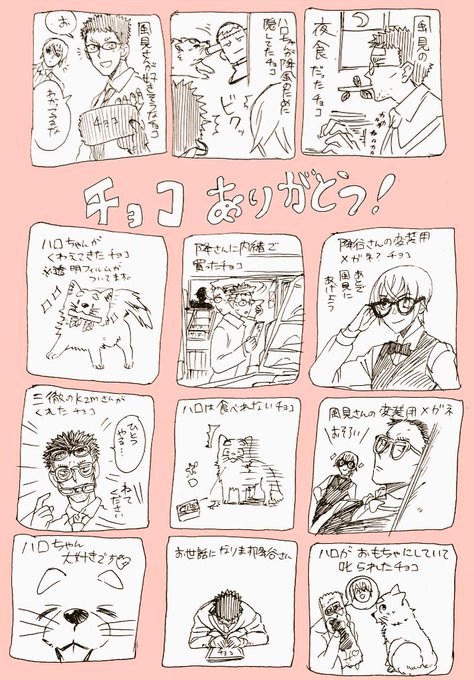 風見の
夜食だったチョコ
ハロちゃんが降風のために
隠してたチョコ
ビクッ
風見さんが好きそうなチョコ
お
チョコ
チョコ ありがとう!
降谷さんの変装用
メガネチョコ
あとで
風見に
あげよう
降さんに内緒で
買ったチョコ
ハロちゃんが
くわえてきたチョコ
※透明フィルムが
ついてます
風見さんの変装用メガネ
おそろい
ハロは食べれないチョコ
三徹のkzmさんが
くれたチョコ
ひとつ
やる…
ねて
ください
ハロがおもちゃにしていて
叱られたチョコ
お世話になります降谷さん
チョコ
ハロちゃん
大好きです